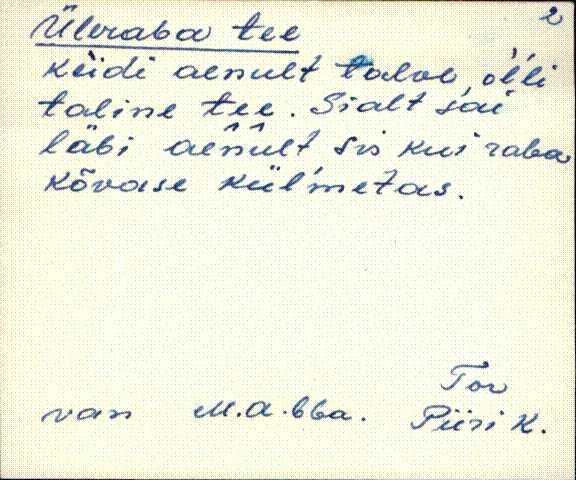 2
Üleraba tee
Keidi aenult talve, ol'li
taline tee. Sialt sai
läbi aen̂n̂ult sis kui raba
kõvase kül'metas.
Tor
van M.A. bba. Piiri K.